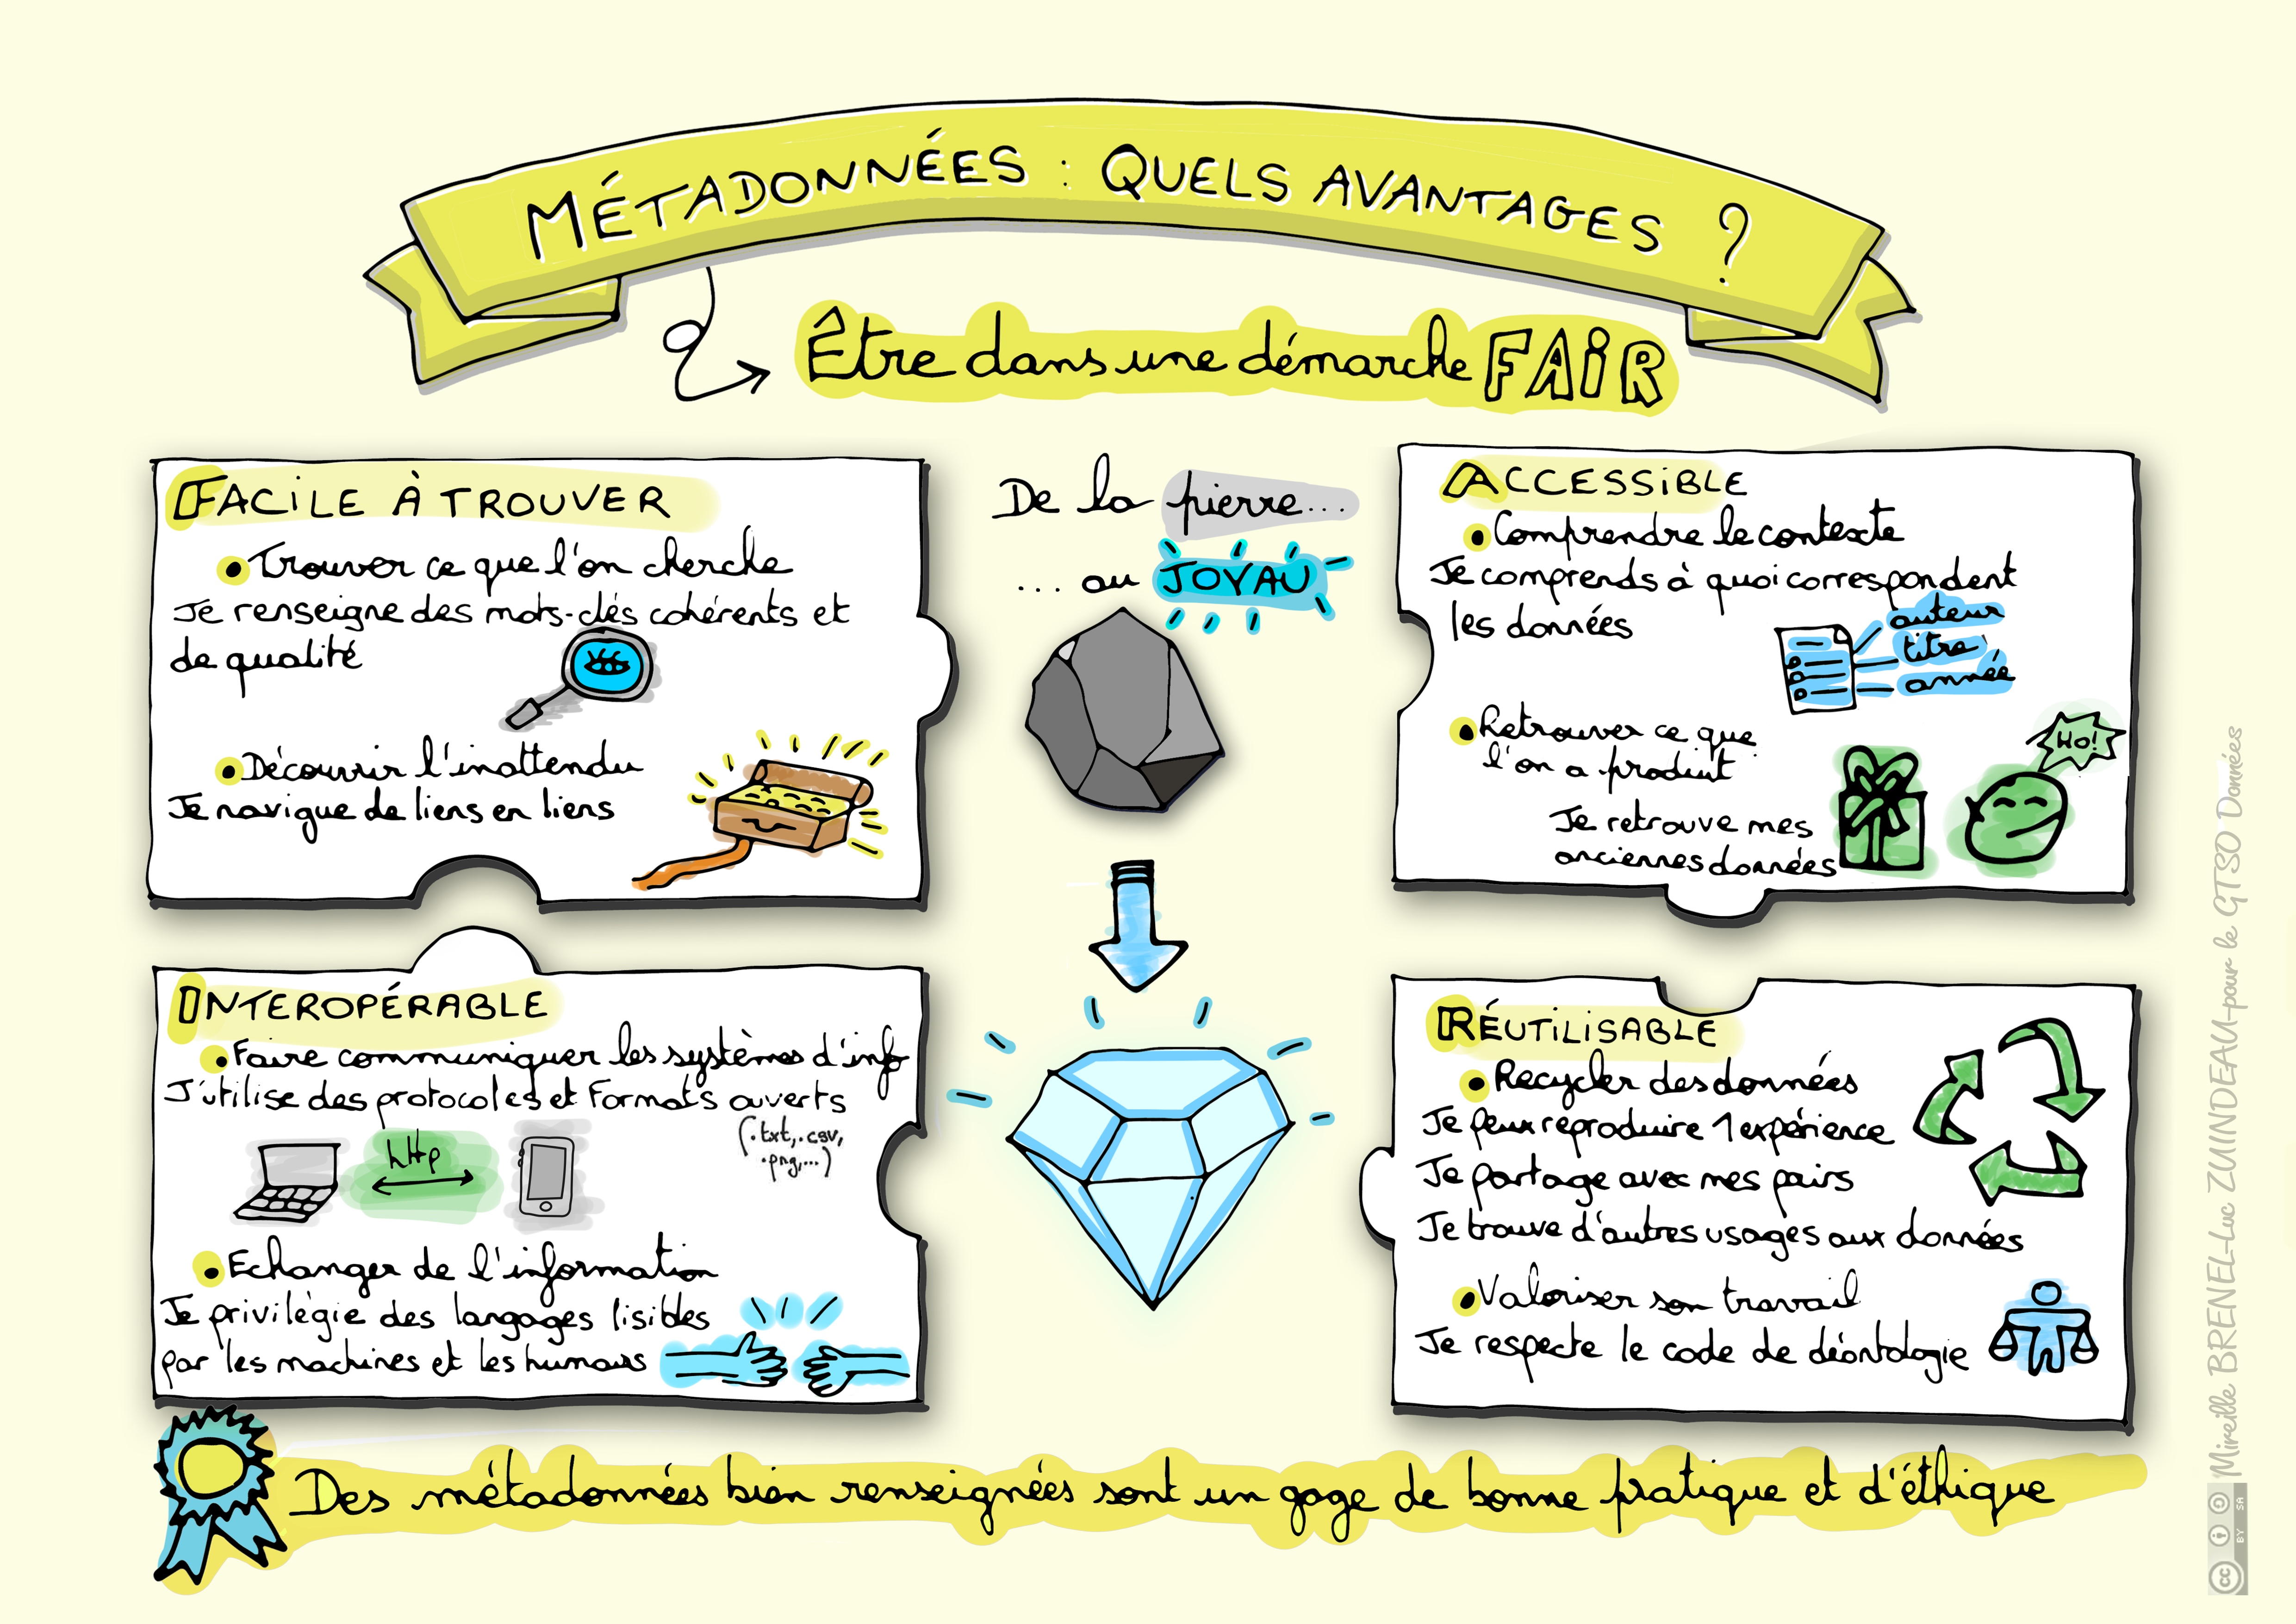 MÉTADONNÉES : QUELS AVANTAGES ?
Être dans une démarche FAIR
FACILE À TROUVER
• Trouver ce que l'on cherche
Je renseigne des mots-clés cohérents et
de qualité
• Découvrir l'inattendu
Je navigue de liens en liens
De la pierre...
... au JOYAU
ACCESSIBLE
• Comprendre le contexte
Je comprends à quoi correspondent
les données
auteur
titre
année
• Retrouver ce que
l'on a produit
Je retrouve mes
anciennes données
HO!
INTEROPÉRABLE
• Faire communiquer les systèmes d'info
J'utilise des protocoles et Formats ouverts
(.txt, .csv,
.png,...)
http
• Echanger de l'information
Je privilégie des langages lisibles
par les machines et les humains
RÉUTILISABLE
• Recycler des données
Je peux reproduire 1 expérience
Je partage avec mes pairs
Je trouve d'autres usages aux données
• Valoriser son travail
Je respecte le code de déontologie
Des métadonnées bien renseignées sont un gage de bonne pratique et d'éthique
Mireille BRENEL-Luc ZUINDEAU-pour le GTSO Données
cc BY SA